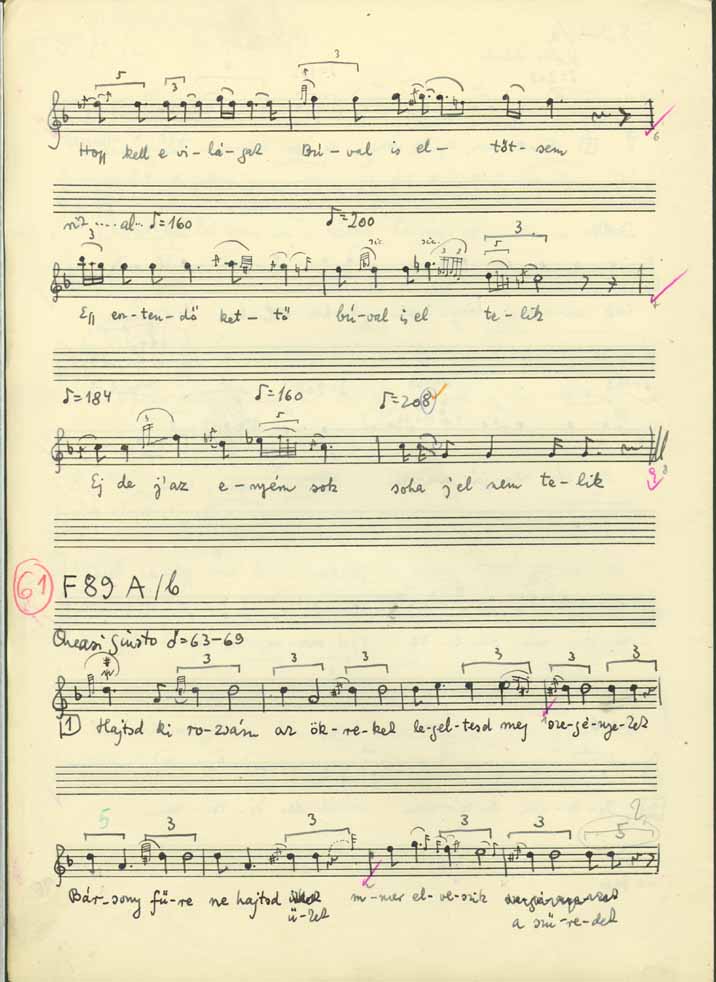 5 3 3
Hogy kell e vi-lá-gat Bú-val is el- töt-sem
6
niz ....al.. ♪=160 ♪=200
3 5 3
Egy en-ten-dő ket-tő bú-val is el te-lik
♪=184 ♪=160 ♪=208
5
Ej de j'az e-nyém sok soha j'el nem te-lik
9 8
61 F 89 A/b
Quasi giusto ♩=63-69
3 3 3 3 3 3
1 Hajtsd ki ro-zsám az ök-re-ket le-gel-tesd meg sze-gé-nye-ket
5 3 3 3 3 5 2
Bár-sony fű-re ne hajtsd m-mer el-ve-szik
ü-ket a szű-re-det